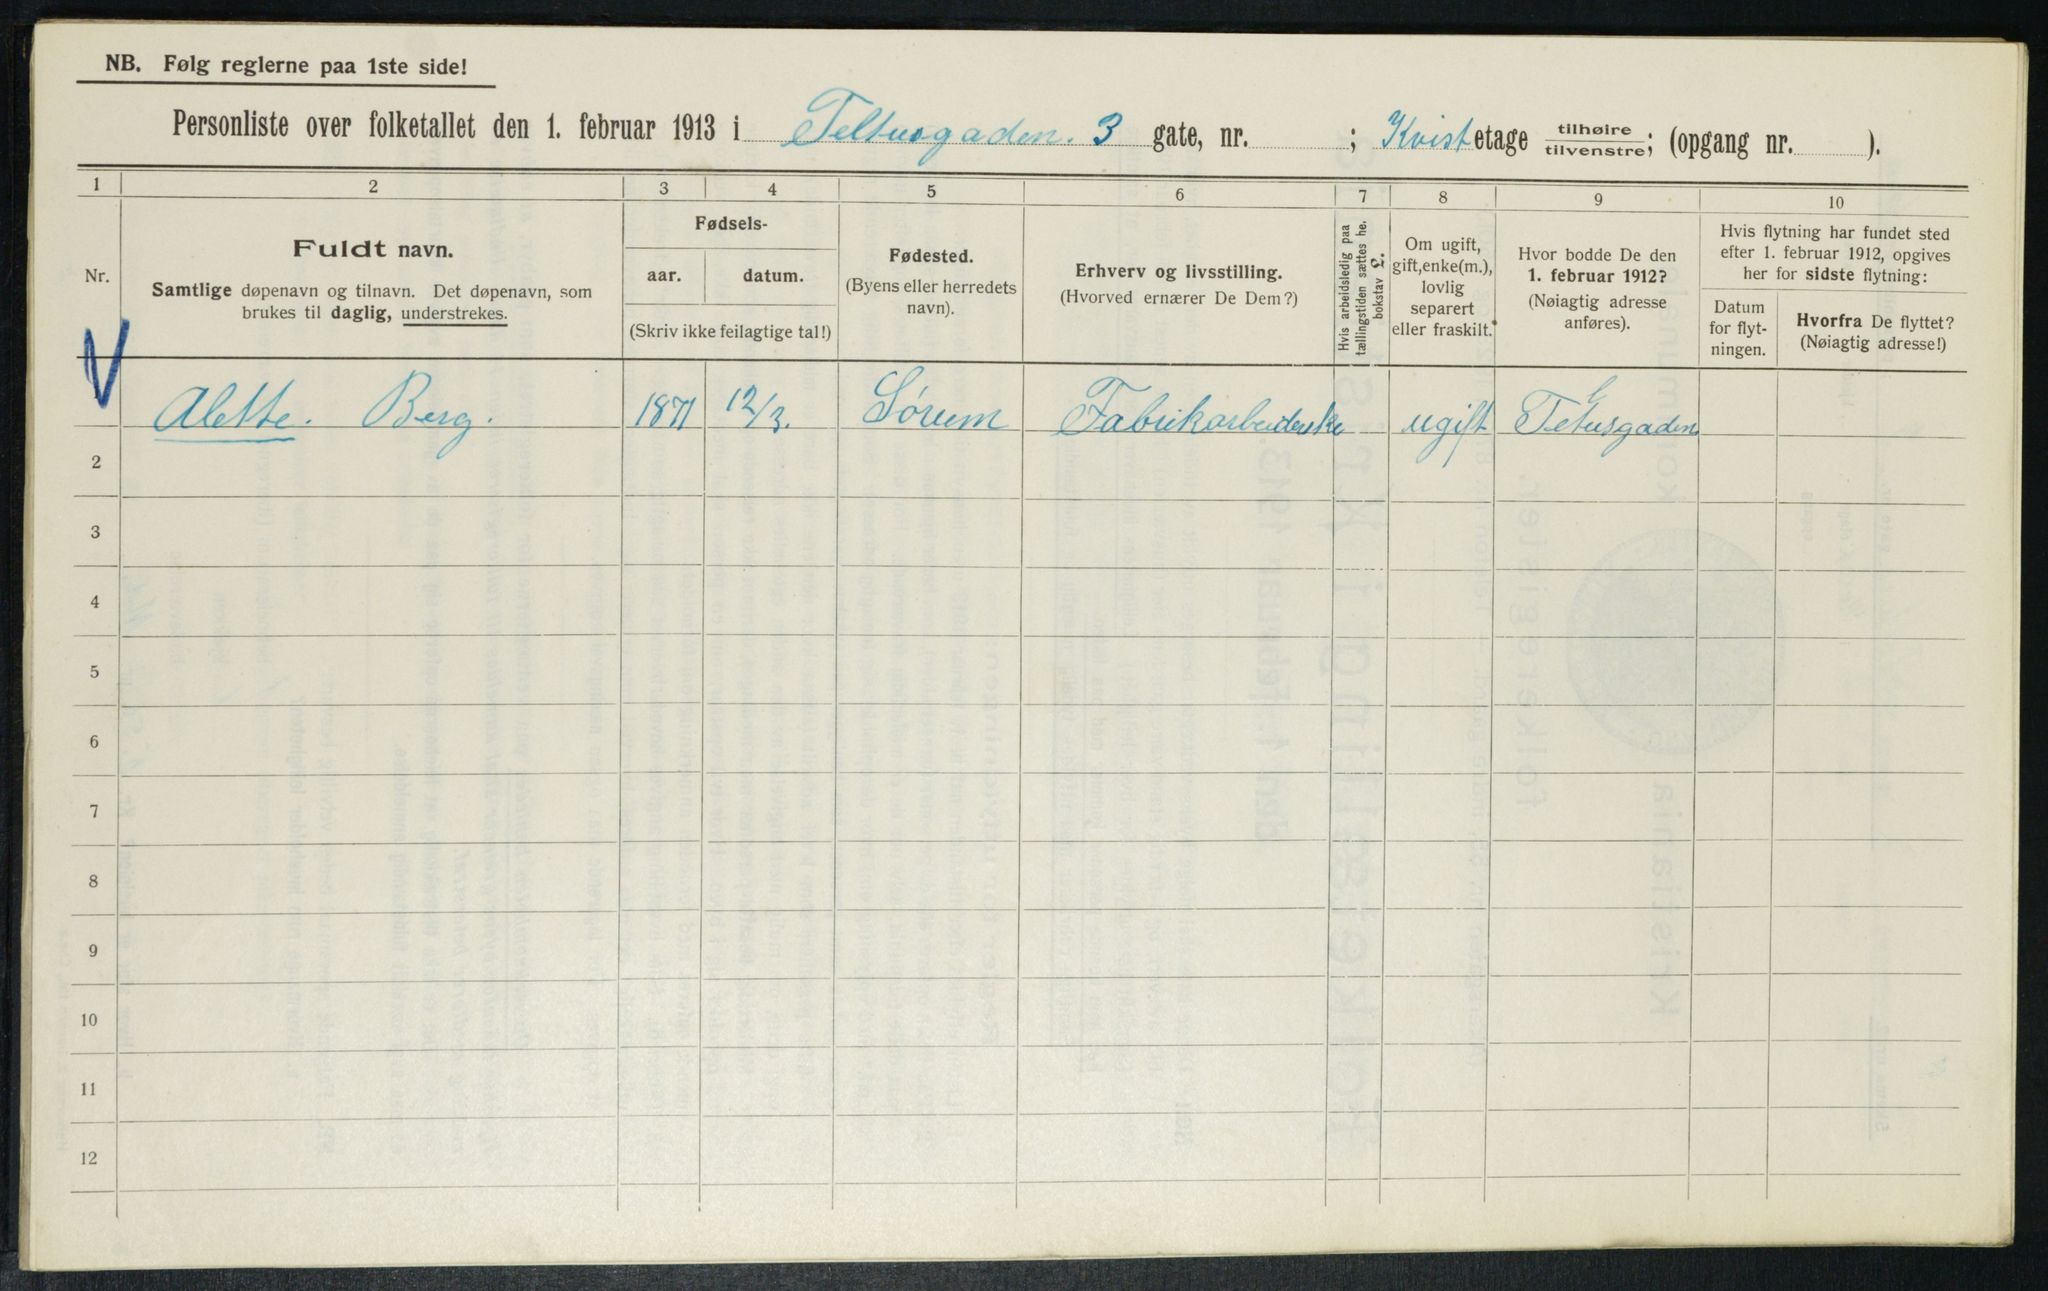 NB. Følg reglerne paa 1ste side!
Personliste over folketallet den 1. februar 1913 i Teltusgaden. 3 gate, nr. ; Kvist etage tilhøire / tilvenstre; (opgang nr. ).
1 2 3 4 5 6 7 8 9 10
Nr.
Fuldt navn.
Samtlige døpenavn og tilnavn. Det døpenavn, som
brukes til daglig, understrekes.
Fødsels-
aar. datum.
(Skriv ikke feilagtige tal!)
Fødested.
(Byens eller herredets
navn).
Erhverv og livsstilling.
(Hvorved ernærer De Dem?)
Hvis arbeidsledig paa
tællingstiden sættes he.
bokstav
Om ugift,
gift, enke(m.),
lovlig
separert
eller fraskilt.
Hvor bodde De den
1. februar 1912?
(Nøiagtig adresse
anføres).
Hvis flytning har fundet sted
efter 1. februar 1912, opgives
her for sidste flytning:
Datum
for flyt-
ningen.
Hvorfra De flyttet?
(Nøiagtig adresse!)
Alette. Berg. 1871 12/3. Sørum Fabrikarbeiderske ugift Tetusgaden
2
3
4
5
6
7
8
9
10
11
12